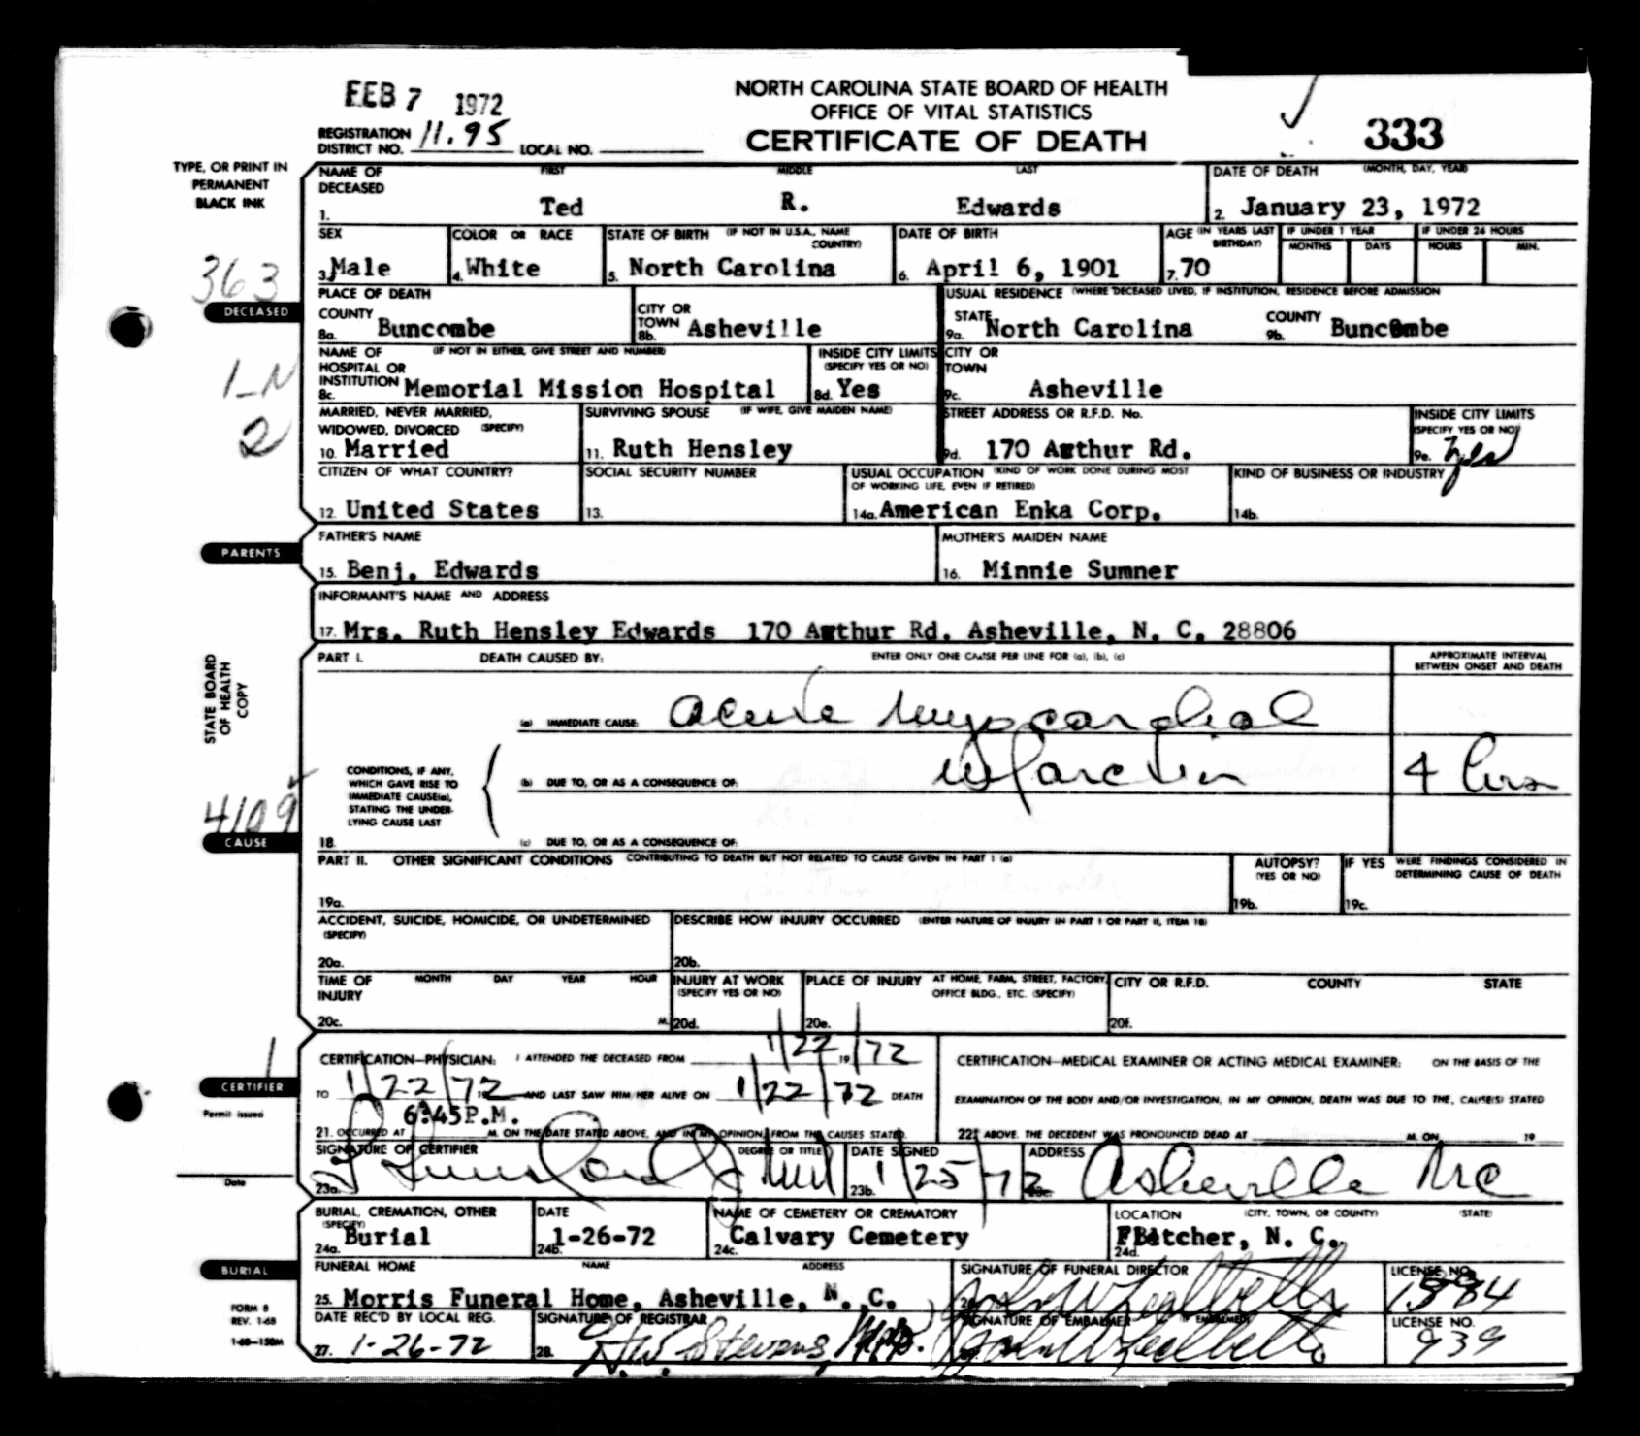 FEB 7 1972
NORTH CAROLINA STATE BOARD OF HEALTH
OFFICE OF VITAL STATISTICS
CERTIFICATE OF DEATH
333
REGISTRATION DISTRICT NO. 11.95 LOCAL NO.
TYPE, OR PRINT IN
PERMANENT
BLACK INK
NAME OF DECEASED FIRST MIDDLE LAST
1. Ted R. Edwards
DATE OF DEATH (MONTH, DAY, YEAR)
2. January 23, 1972
SEX
3. Male
COLOR OR RACE
4. White
STATE OF BIRTH (IF NOT IN U.S.A., NAME COUNTRY)
5. North Carolina
DATE OF BIRTH
6. April 6, 1901
AGE (IN YEARS LAST BIRTHDAY)
7. 70
IF UNDER 1 YEAR
MONTHS DAYS
IF UNDER 24 HOURS
HOURS MIN.
363
DECEASED
PLACE OF DEATH
COUNTY
8a. Buncombe
CITY OR TOWN
8b. Asheville
USUAL RESIDENCE (WHERE DECEASED LIVED, IF INSTITUTION, RESIDENCE BEFORE ADMISSION
STATE
9a. North Carolina
COUNTY
9b. Buncombe
1-N
2
NAME OF HOSPITAL OR INSTITUTION (IF NOT IN EITHER, GIVE STREET AND NUMBER)
8c. Memorial Mission Hospital
INSIDE CITY LIMITS (SPECIFY YES OR NO)
8d. Yes
CITY OR TOWN
9c. Asheville
MARRIED, NEVER MARRIED, WIDOWED, DIVORCED (SPECIFY)
10. Married
SURVIVING SPOUSE (IF WIFE, GIVE MAIDEN NAME)
11. Ruth Hensley
STREET ADDRESS OR R.F.D. No.
9d. 170 Arthur Rd.
INSIDE CITY LIMITS (SPECIFY YES OR NO)
9e. Yes
CITIZEN OF WHAT COUNTRY?
12. United States
SOCIAL SECURITY NUMBER
13.
USUAL OCCUPATION (KIND OF WORK DONE DURING MOST OF WORKING LIFE, EVEN IF RETIRED)
14a. American Enka Corp.
KIND OF BUSINESS OR INDUSTRY
14b.
PARENTS
FATHER'S NAME
15. Benj. Edwards
MOTHER'S MAIDEN NAME
16. Minnie Sumner
INFORMANT'S NAME AND ADDRESS
17. Mrs. Ruth Hensley Edwards 170 Arthur Rd. Asheville, N. C. 28806
STATE BOARD
OF HEALTH
COPY
PART I. DEATH CAUSED BY: ENTER ONLY ONE CAUSE PER LINE FOR (a), (b), (c)
APPROXIMATE INTERVAL BETWEEN ONSET AND DEATH
(a) IMMEDIATE CAUSE: acute myocardial
CONDITIONS, IF ANY, WHICH GAVE RISE TO IMMEDIATE CAUSE(a), STATING THE UNDERLYING CAUSE LAST
(b) DUE TO, OR AS A CONSEQUENCE OF: infarction 4 hrs
4109
CAUSE
18. (c) DUE TO, OR AS A CONSEQUENCE OF:
PART II. OTHER SIGNIFICANT CONDITIONS CONTRIBUTING TO DEATH BUT NOT RELATED TO CAUSE GIVEN IN PART I (a)
19a.
AUTOPSY? (YES OR NO)
19b.
IF YES WERE FINDINGS CONSIDERED IN DETERMINING CAUSE OF DEATH
19c.
ACCIDENT, SUICIDE, HOMICIDE, OR UNDETERMINED (SPECIFY)
20a.
DESCRIBE HOW INJURY OCCURRED (ENTER NATURE OF INJURY IN PART I OR PART II, ITEM 18)
20b.
TIME OF INJURY MONTH DAY YEAR HOUR
20c. M.
INJURY AT WORK (SPECIFY YES OR NO)
20d.
PLACE OF INJURY AT HOME, FARM, STREET, FACTORY, OFFICE BLDG., ETC. (SPECIFY)
20e.
CITY OR R.F.D. COUNTY STATE
20f.
1
CERTIFIER
Permit issued
Date
CERTIFICATION—PHYSICIAN: I ATTENDED THE DECEASED FROM 1/22 19/72
TO 1/22/72 AND LAST SAW HIM/HER ALIVE ON 1/22/72 DEATH
6:45P.M.
21. OCCURRED AT M. ON THE DATE STATED ABOVE, AND IN MY OPINION, FROM THE CAUSES STATED.
CERTIFICATION—MEDICAL EXAMINER OR ACTING MEDICAL EXAMINER: ON THE BASIS OF THE
EXAMINATION OF THE BODY AND/OR INVESTIGATION, IN MY OPINION, DEATH WAS DUE TO THE, CAUSE(S) STATED
22. ABOVE. THE DECEDENT WAS PRONOUNCED DEAD AT M. ON 19
SIGNATURE OF CERTIFIER DEGREE OR TITLE
23a.
DATE SIGNED
23b. 1/25/72
ADDRESS
23c. Asheville NC
BURIAL, CREMATION, OTHER (SPECIFY)
24a. Burial
DATE
24b. 1-26-72
NAME OF CEMETERY OR CREMATORY
24c. Calvary Cemetery
LOCATION (CITY, TOWN, OR COUNTY) (STATE)
24d. Fletcher, N. C.
BURIAL
FUNERAL HOME NAME ADDRESS
25. Morris Funeral Home, Asheville, N. C.
SIGNATURE OF FUNERAL DIRECTOR
LICENSE NO.
FORM 8
REV. 1-68
1-68—150M
DATE REC'D BY LOCAL REG.
27. 1-26-72
SIGNATURE OF REGISTRAR
28. H.W. Stevens,
SIGNATURE OF EMBALMER
LICENSE NO.
939